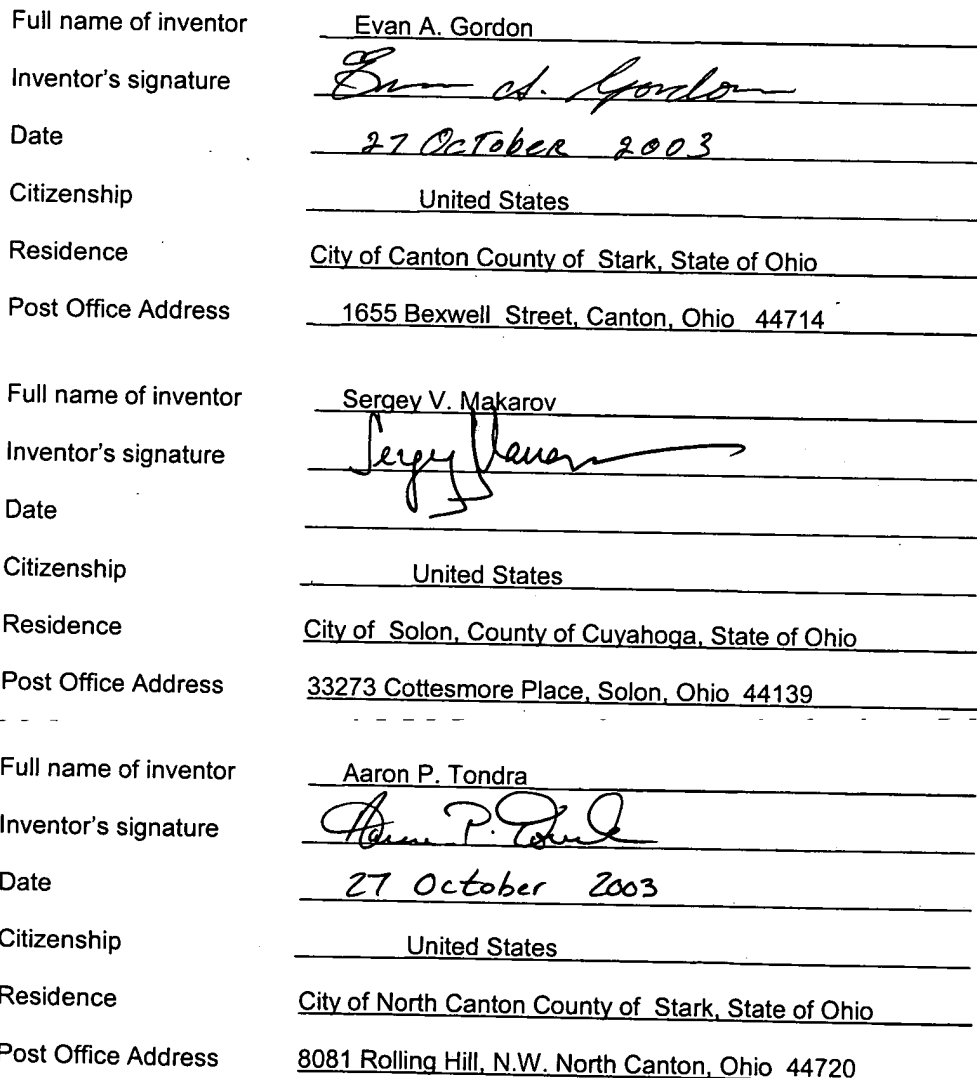 Full name of inventor Evan A. Gordon
Inventor's signature Evan A. Gordon
Date 27 October 2003
Citizenship United States
Residence City of Canton County of Stark, State of Ohio
Post Office Address 1655 Bexwell Street, Canton, Ohio 44714
Full name of inventor Sergey V. Makarov
Inventor's signature Sergey
Date
Citizenship United States
Residence City of Solon, County of Cuyahoga, State of Ohio
Post Office Address 33273 Cottesmore Place, Solon, Ohio 44139
Full name of inventor Aaron P. Tondra
Inventor's signature Aaron P. Tondra
Date 27 October 2003
Citizenship United States
Residence City of North Canton County of Stark, State of Ohio
Post Office Address 8081 Rolling Hill, N.W. North Canton, Ohio 44720